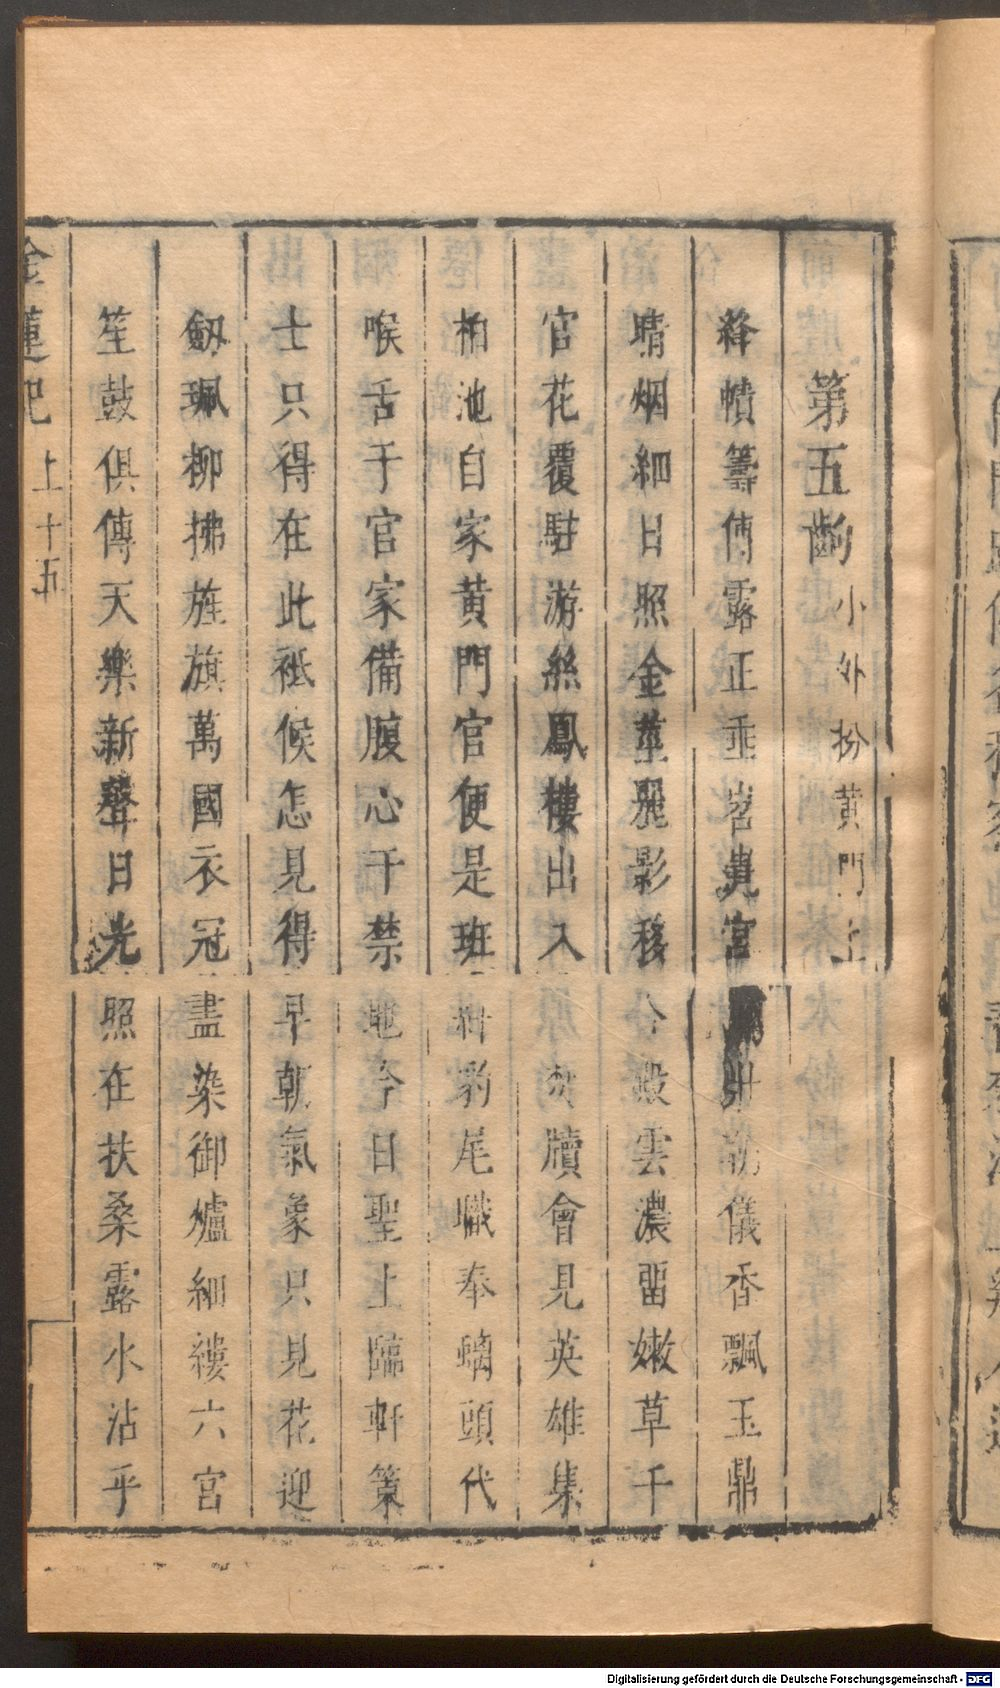 第五齣 小外扮黄門上
絳幘籌傳露正垂岧嶤宮 卅朝儀香飄玉鼎
晴烟細日照金莖飛影移 令殿雲濃留嫩草千
官花覆駐游絲鳳樓出入 文牘會見英雄集
柏池自家黄門官便是班 豹尾職奉螭頭代
喉舌于官家備腹心于禁 地今日聖上臨軒策
士只得在此祗候怎見得 早朝氣象只見花迎
劒珮柳拂旌旗萬國衣冠 盡染御爐細縷六宮
笙鼓俱傳天樂新聲日光 照在扶桑露水沾乎
金蓮記 上 十五
Digitalisierung gefördert durch die Deutsche Forschungsgemeinschaft - DFG